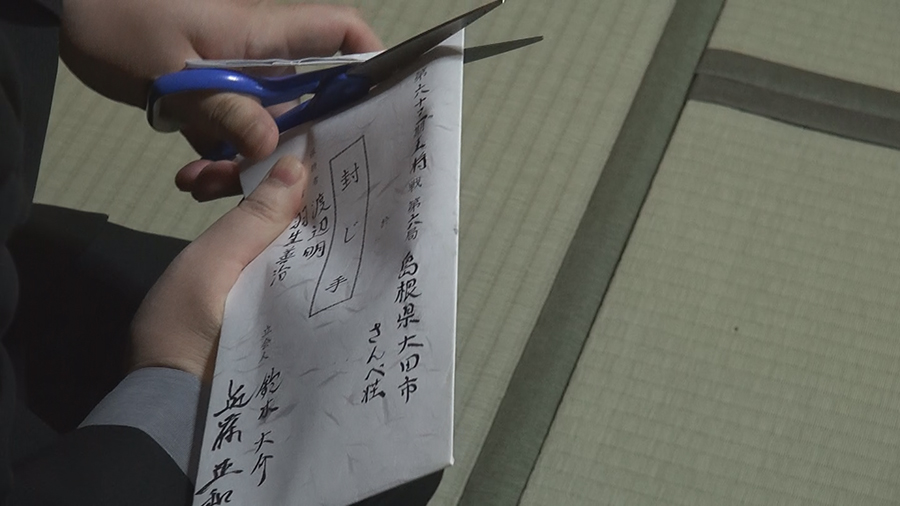 第六十三期王将戦 第六局
於
島根県大田市
さんべ荘
封じ手
渡辺明
羽生善治
立会人
鈴木大介
近藤正和